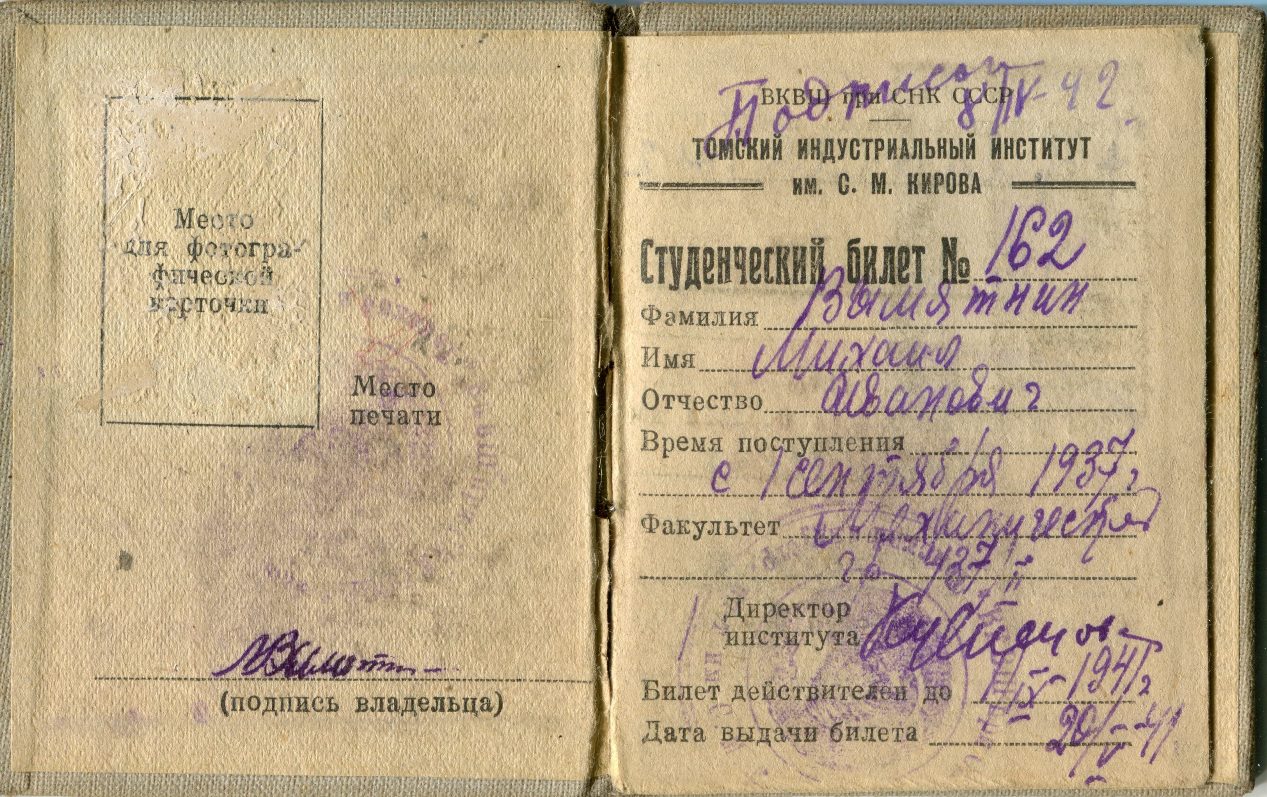 Место
для фотогра-
фической
карточки
Место
печати
(подпись владельца)
ВКВШ при СНК СССР
ТОМСКИЙ ИНДУСТРИАЛЬНЫЙ ИНСТИТУТ
им. С. М. КИРОВА
Студенческий билет № 162
Фамилия Вымятнин
Имя Михаил
Отчество Иванович
Время поступления
с 1 сентября 1937 г
Факультет Механический
гр 427
Директор
института
Билет действителен до 1/IX-1941 г
Дата выдачи билета 20/V-41